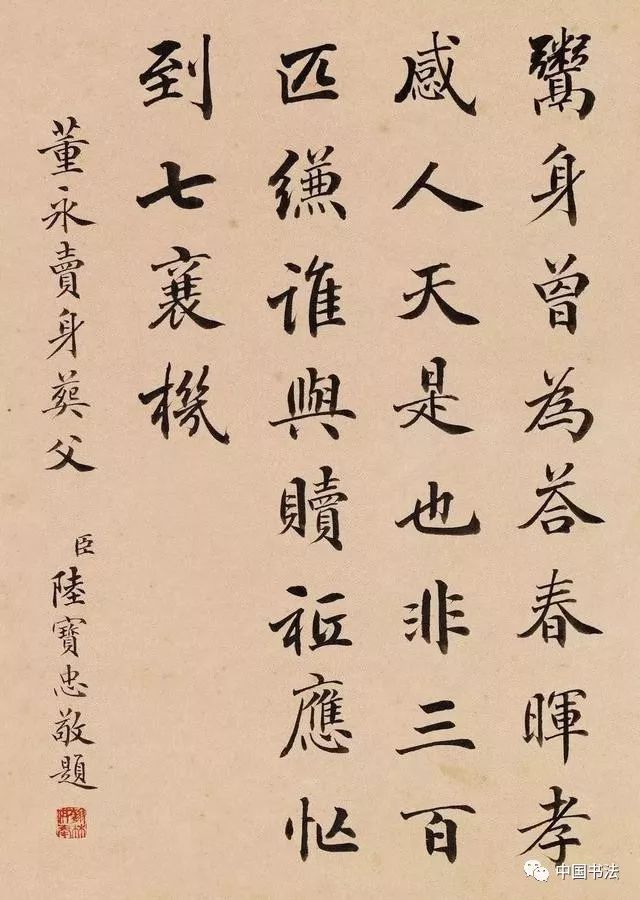 鬻身曾為荅春暉孝
感人天是也非三百
匹縑誰與贖祗應忙
到七襄機
董永賣身葬父
臣陸寶忠敬題
中国书法